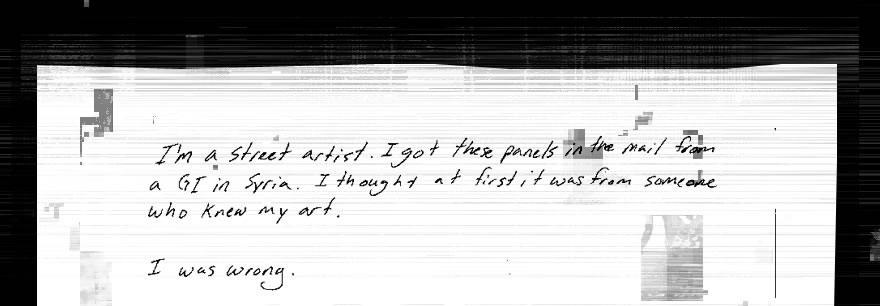 I'm a street artist. I got these panels in the mail from
a GI in Syria. I thought at first it was from someone
who knew my art.
I was wrong.